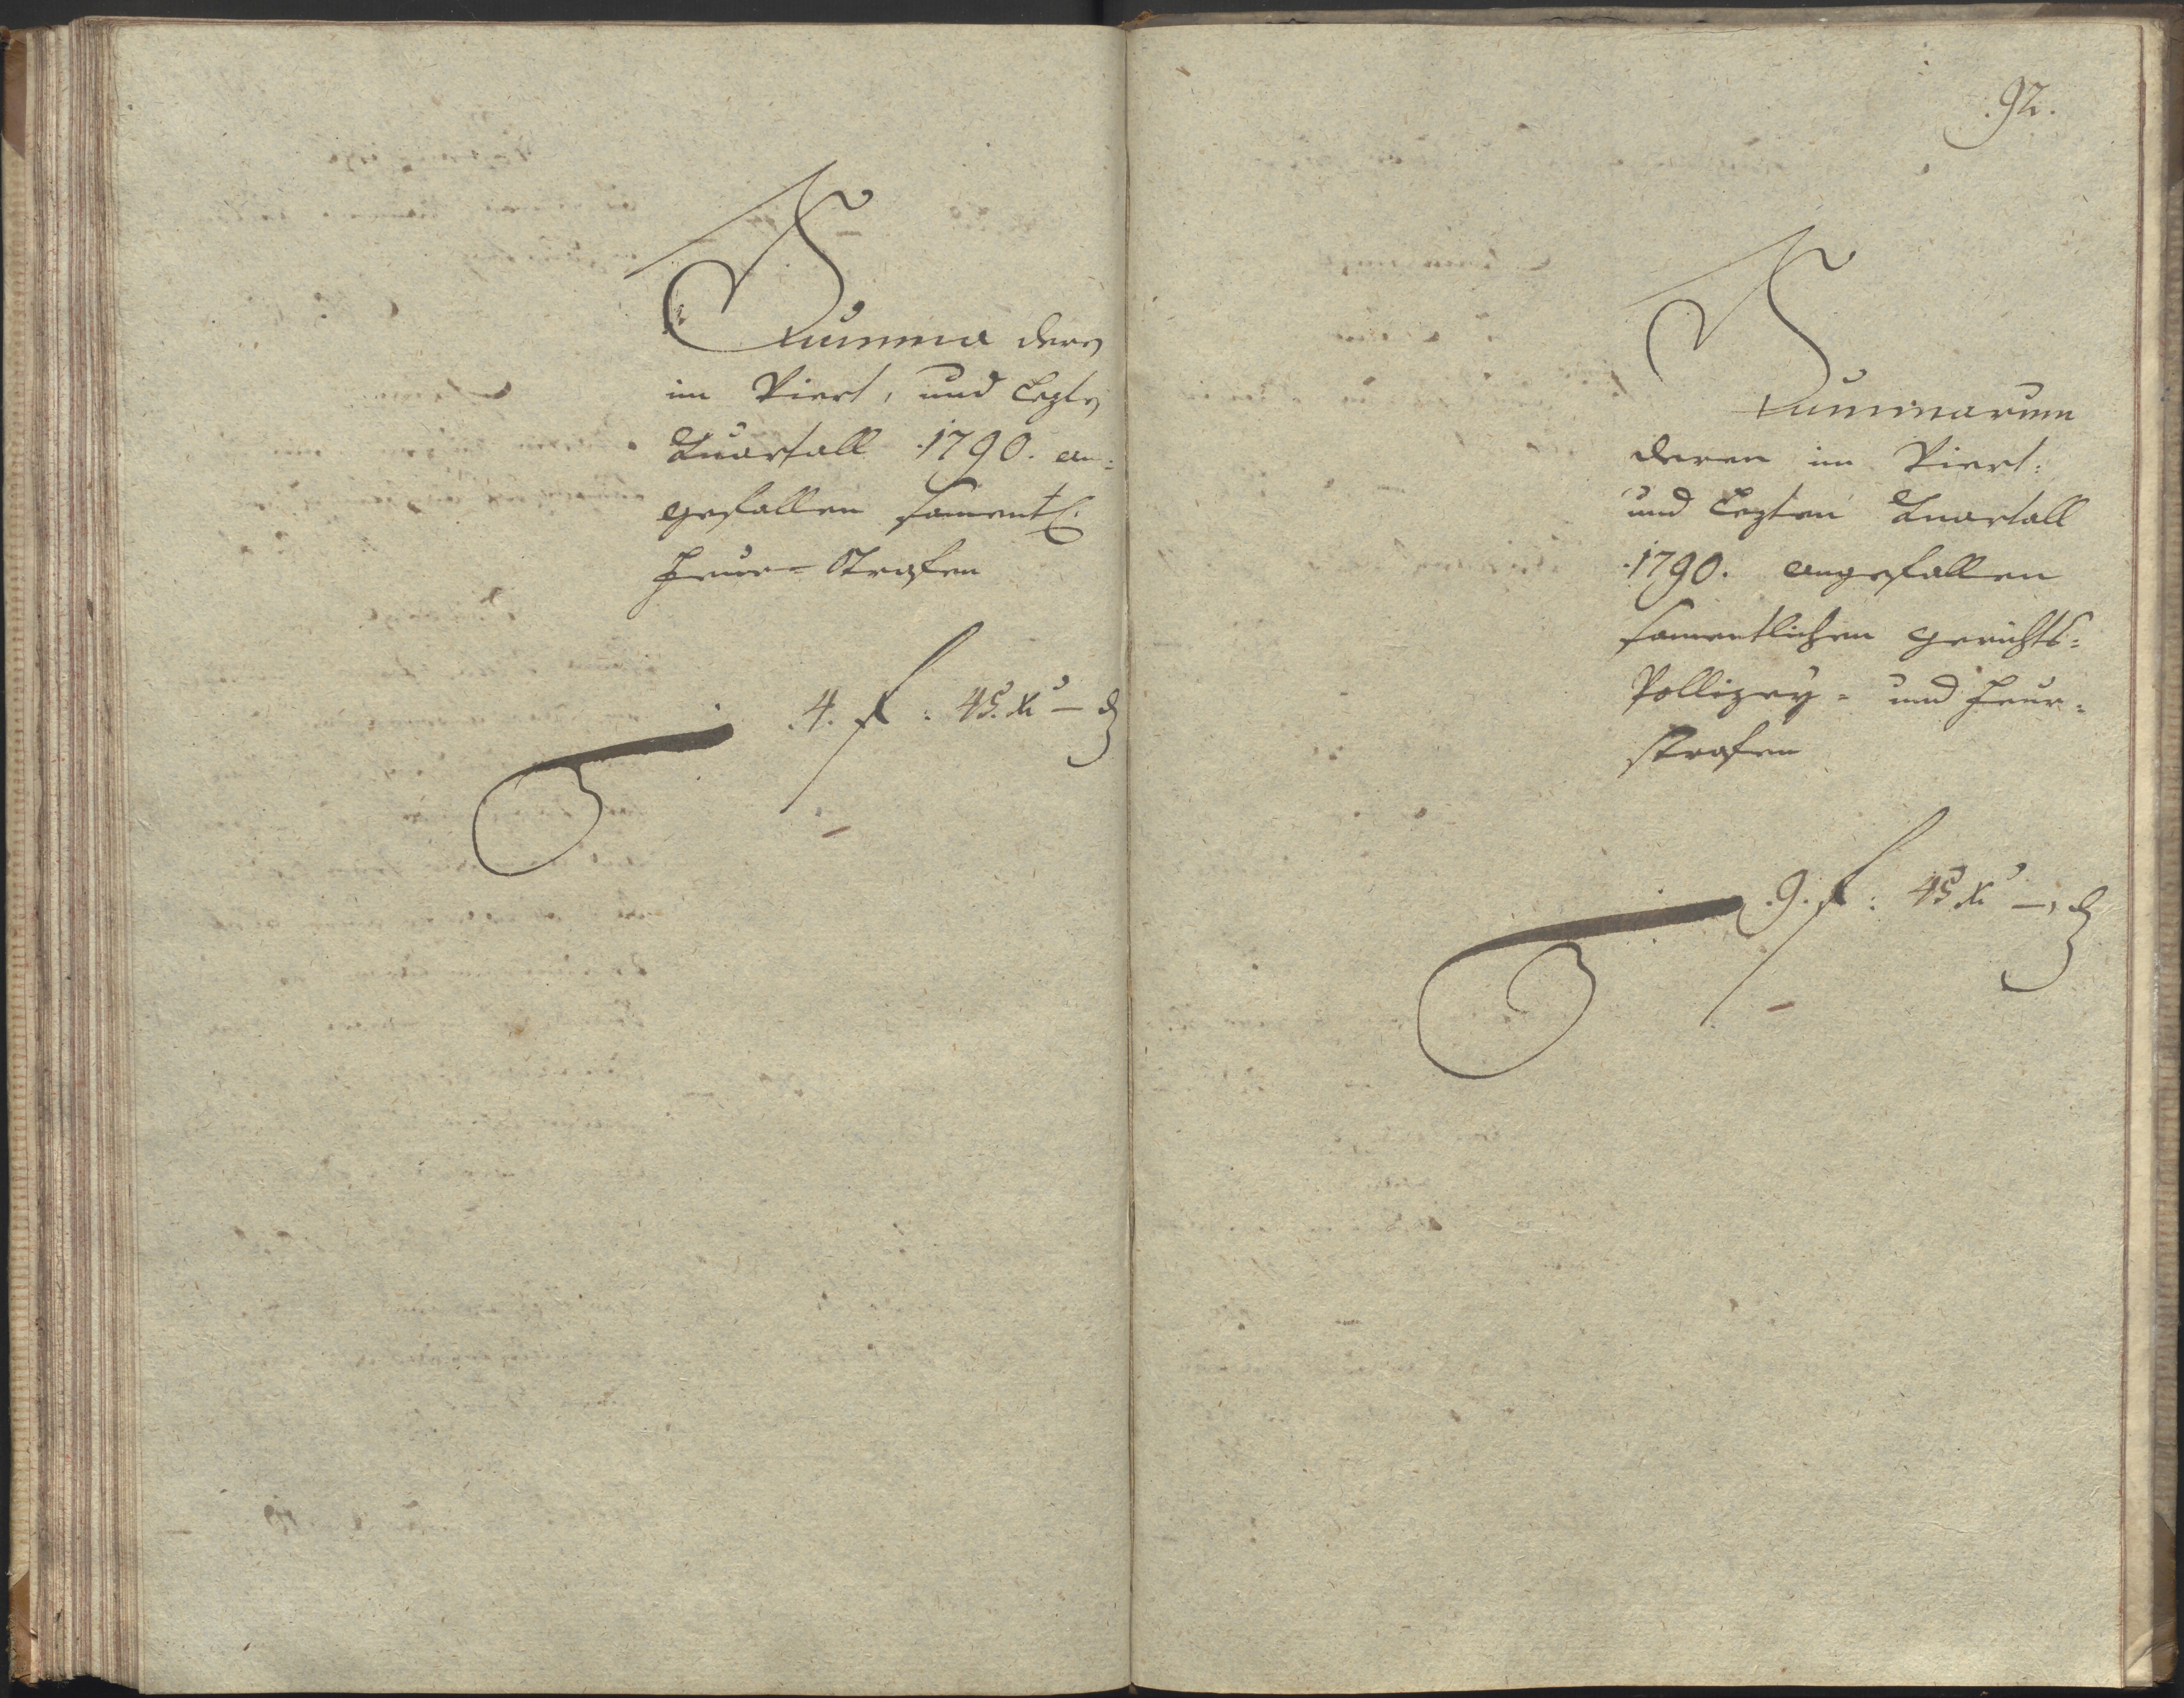 Summa deren
im Viert, und Lezten
Quartall 1790. an-
gefallen samentl.
Feur-Strafen
4. f: 45. Xr — d
92.
Summarum
deren im Viert-
und Lezten Quartall
1790. angefallen
samentlichen Gerichts-
Pollizey- und Feur-
strafen
9. f: 45 Xr —, d